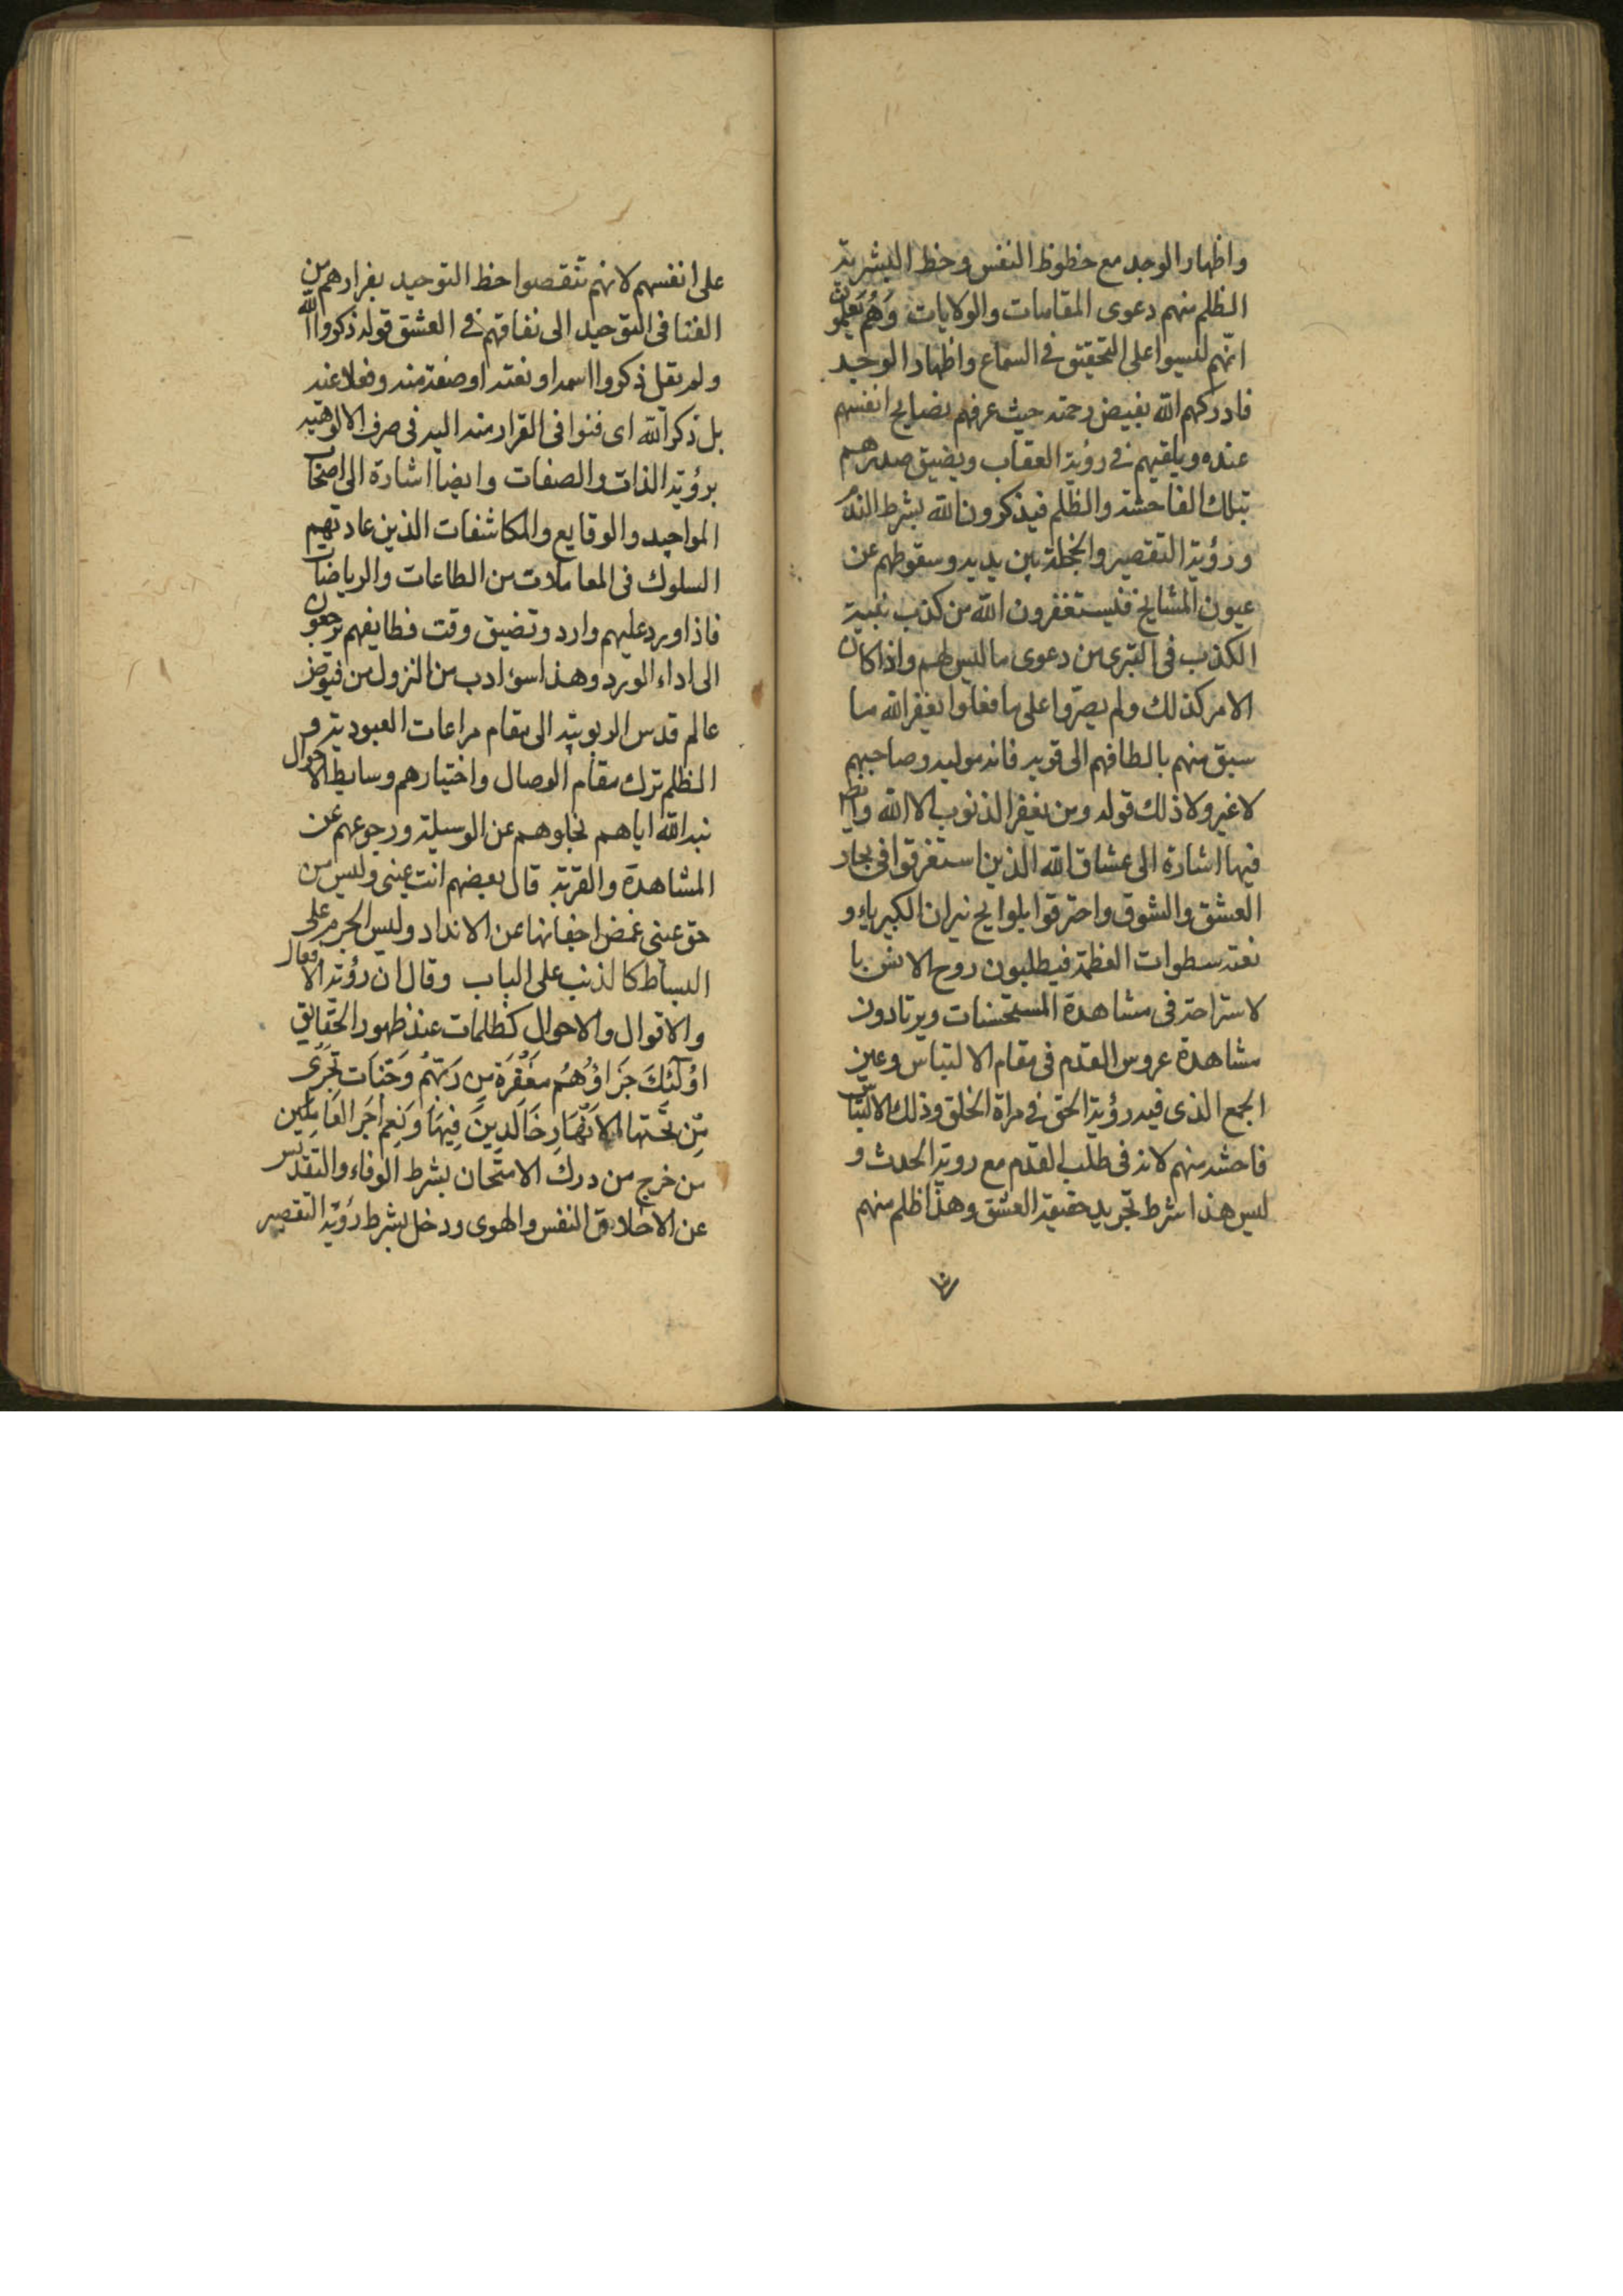 واظهار الوجد مع حظوظ النفس وحظ البشرية
الظلم منهم دعوى المقامات والولايات وَهُم يَعلَمُون
انّهم ليسوا على التحقيق في السماع واظهار الوجد
فادركهم الله بفيض رحمته حيث عرفهم بضايح انفسهم
عنده ويلقيهم في رؤية العقاب ويضيق صدرهم
بتلك الفاحشة والظلم فيذكرون الله بشرط الندم
ورؤية التقصير والخجلة بين يديه وسقوطهم عن
عيون المشايخ فليستغفرون الله من كذب
الكذب في التبرى من دعوى ما ليس لهم واذا كان
الامر كذلك ولم يصرّوا على ما فعلوا يغفر الله ما
سبق منهم بالطافهم الى قويه فانه موليه وصاحبهم
لا غير ولا ذلك قوله ومن يغفر الذنوب الا الله وايضا
فيها اشارة الى عشاق الله الذين استغرقوا في بحار
العشق والشوق واحترقوا بلوايح نيران الكبرياء و
نعته سطوات العظمة فيطلبون روح الانس با
لاستراحة في مشاهدة المستحسنات ويرتادون
مشاهدة عروس القدم في مقام الالتباس وعين
الجمع الذى فيه رؤية الحق في مراة الخلق وذلك الالتباس
فاحشه منهم لانه في طلب القدم مع روية الحدث و
ليس هذا شرط تجريد حقيقة العشق وهذا ظلم منهم
على انفسهم لانهم تنقصوا حظ التوحيد بفرارهم من
الفنا في التوحيد الى نفاقهم في العشق قوله ذكروا الله
ولم يقل ذكروا اسمه او نعته او صفة منه وفعلا عنه
بل ذكر الله اى فنوا في القرار منه اليه في صرف الالوهيه
برؤية الذات والصفات وايضا اشارة الى اصحاب
المواجيد والوقايع والمكاشفات الذين عادتهم
السلوك في المعاملات من الطاعات والرياضات
فاذا ورد عليهم وارد وتضيق وقت فطايفهم يرجعون
الى اداء الورد وهذا سوء ادب من النزول من فيوض
عالم قدس الربوبية الى مقام مراعات العبودية و
الظلم ترك مقام الوصال واختيارهم وسايط الاحوال
نبه الله اياهم نخلوهم عن الوسيلة ورجوعهم عن
المشاهدة والقربة قال بعضهم انت عيني وليس من
حق عيني غمض اجفانها عن الانداد وليس الجرم على
البساط كالذنب على الباب وقال ان رؤية الافعال
والاقوال والاحوال كظلمات عند ظهور الحقايق
اوُلَئِكَ جَزَاؤُهُم مَغفِرَة مِن رَبّهُم وَجَنَات تَجرى
مِن تَحتها الاَنهَارِ خَالدِينَ فِيهَا وَنِعم اَجر العَامِلِين
من خرج من درك الامتحان بشرط الوفاء والتقديس
عن الاخلاق النفس والهوى ودخل بشرط رؤية التقصير